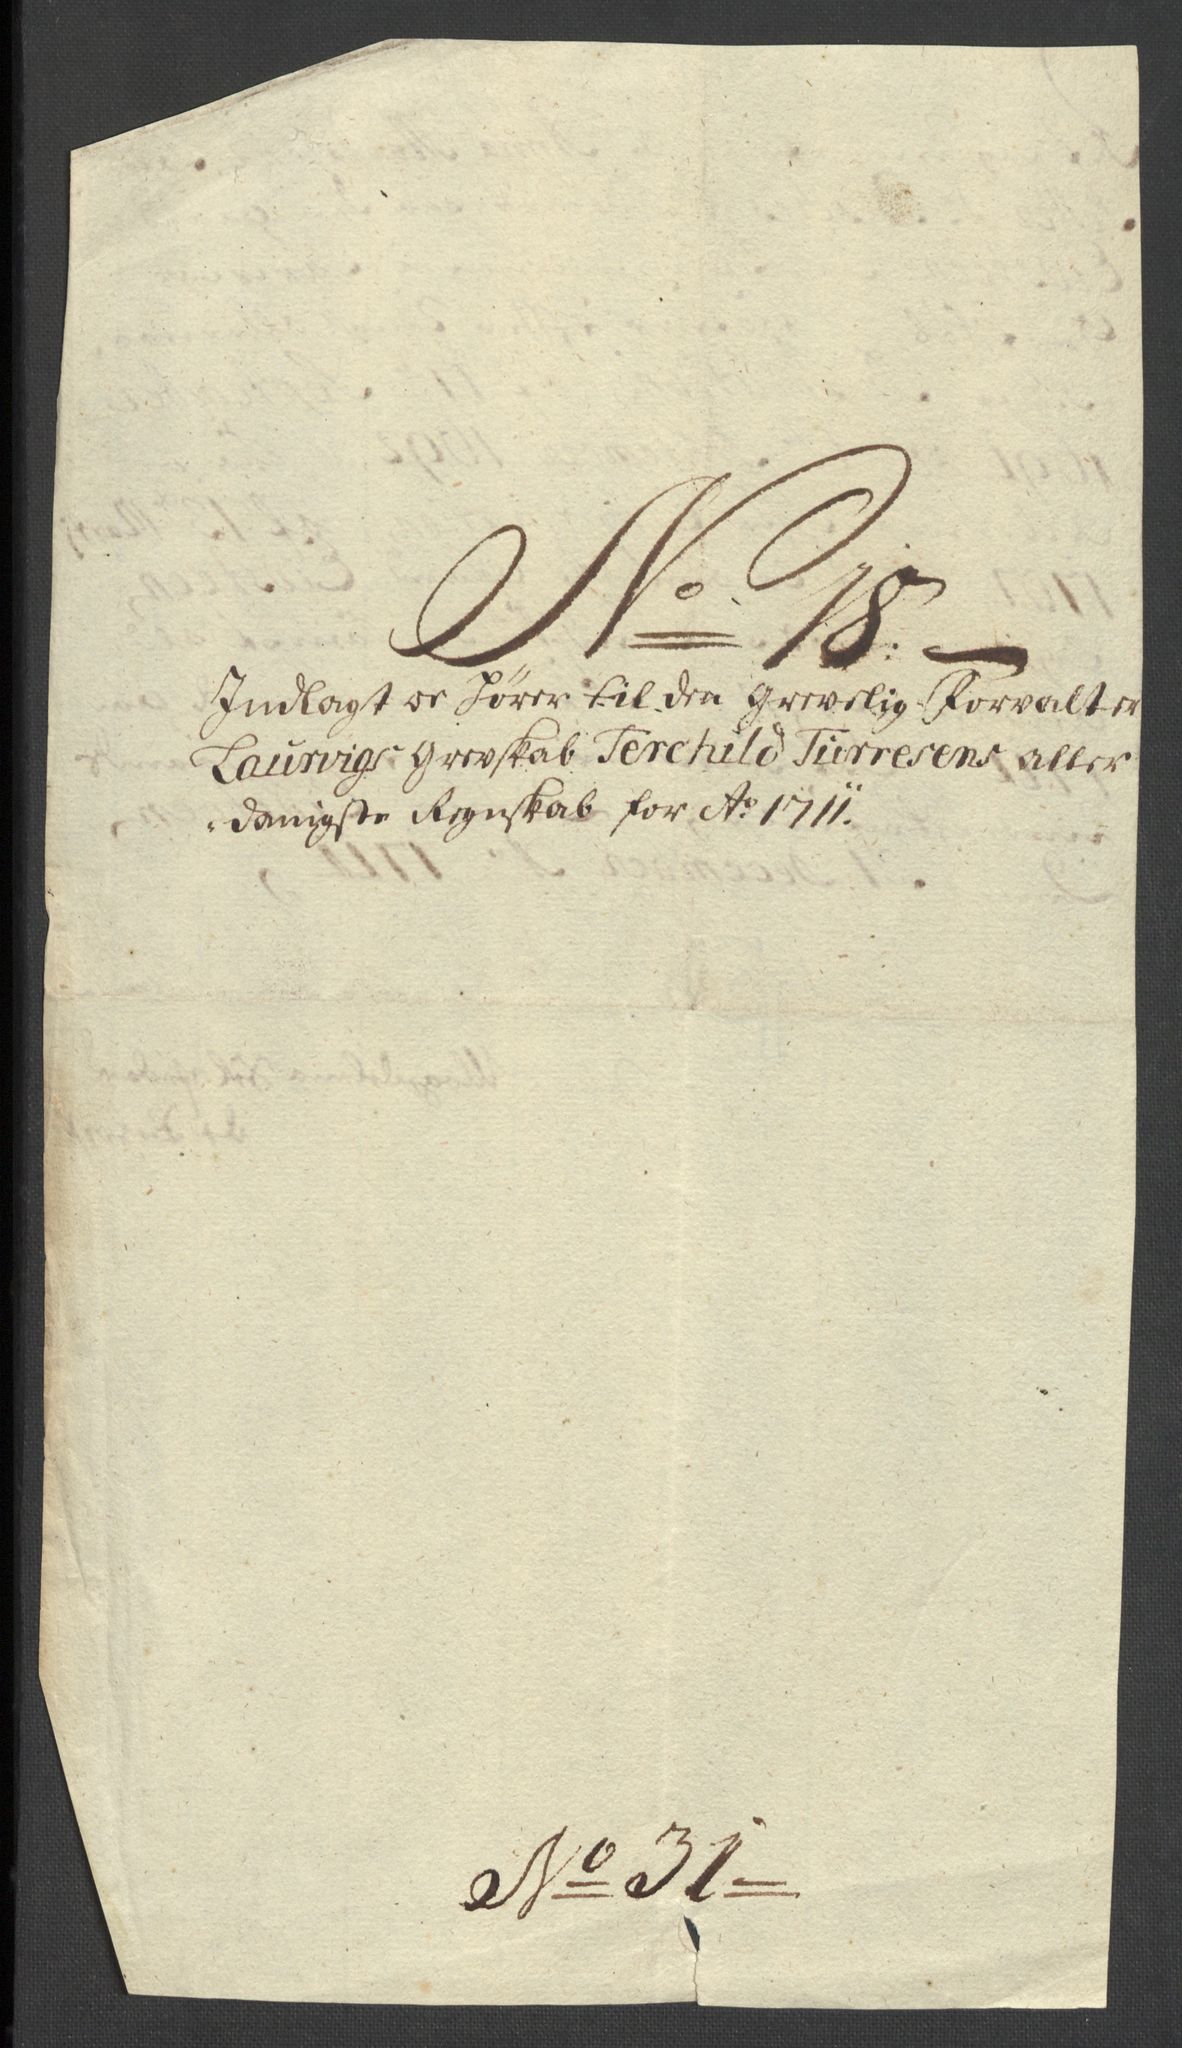 No 18.
Indlagt oc hörer til den Grevelig Forvalter
Laurvigs Grevskab Terchild Turresens aller
danigste Regnskab for Ao 1711.
No 31